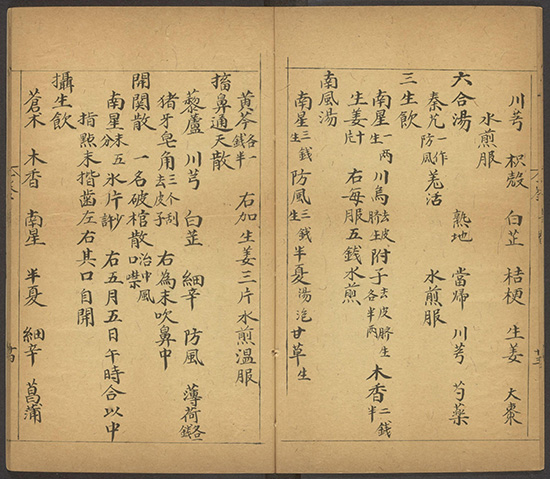 川芎 枳殼 白芷 桔梗 生姜 大棗
水煎服
六合湯 熟地 當歸 川芎 芍藥
秦艽一作防風 羗活 水煎服
三生飲
南星生一兩 川烏去皮臍生 附子去皮臍生各半兩 木香二錢半
生姜十片 右每服五錢水煎
南風湯
南星生三錢 防風生三錢 半夏湯泡 甘草生
黃芩各一錢半 右加生姜三片水煎温服
搐鼻通天散
藜蘆 川芎 白芷 細辛 防風 薄荷各一錢
猪牙皂角三个刮去皮子 右為末吹鼻中
開関散 一名破棺散治中風口噤
南星末五分 氷片少許 右五月五日午時合以中
指㸃末揩齒左右其口自開
攝生飲
蒼术 木香 南星 半夏 細辛 菖蒲